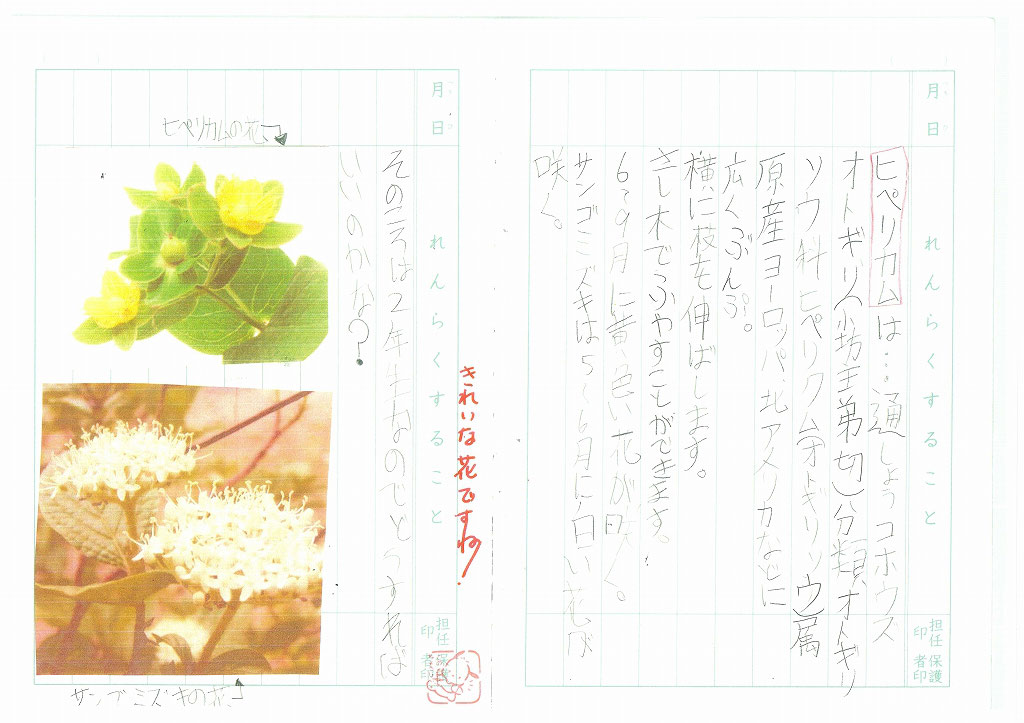 月
日
れんらくすること
担任印
保護者印
ヒペリカムは…通しょうコボウズ
オトギリ(小坊主弟切)分類、オトギリ
ソウ科ヒペリクム(オトギリソウ)属
原産ヨーロッパ、北アメリカなどに
広くぶんぷ。
横に枝を伸ばします。
さし木でふやすことができます。
6〜9月に黄色い花が咲く。
サンゴミズキは5〜6月に白い花が
咲く。
月
日
れんらくすること
担任印
保護者印
きれいな花ですね!
そのころは2年生なのでどうすれば
いいのかな?
ヒペリカムの花
サンゴミズキの花